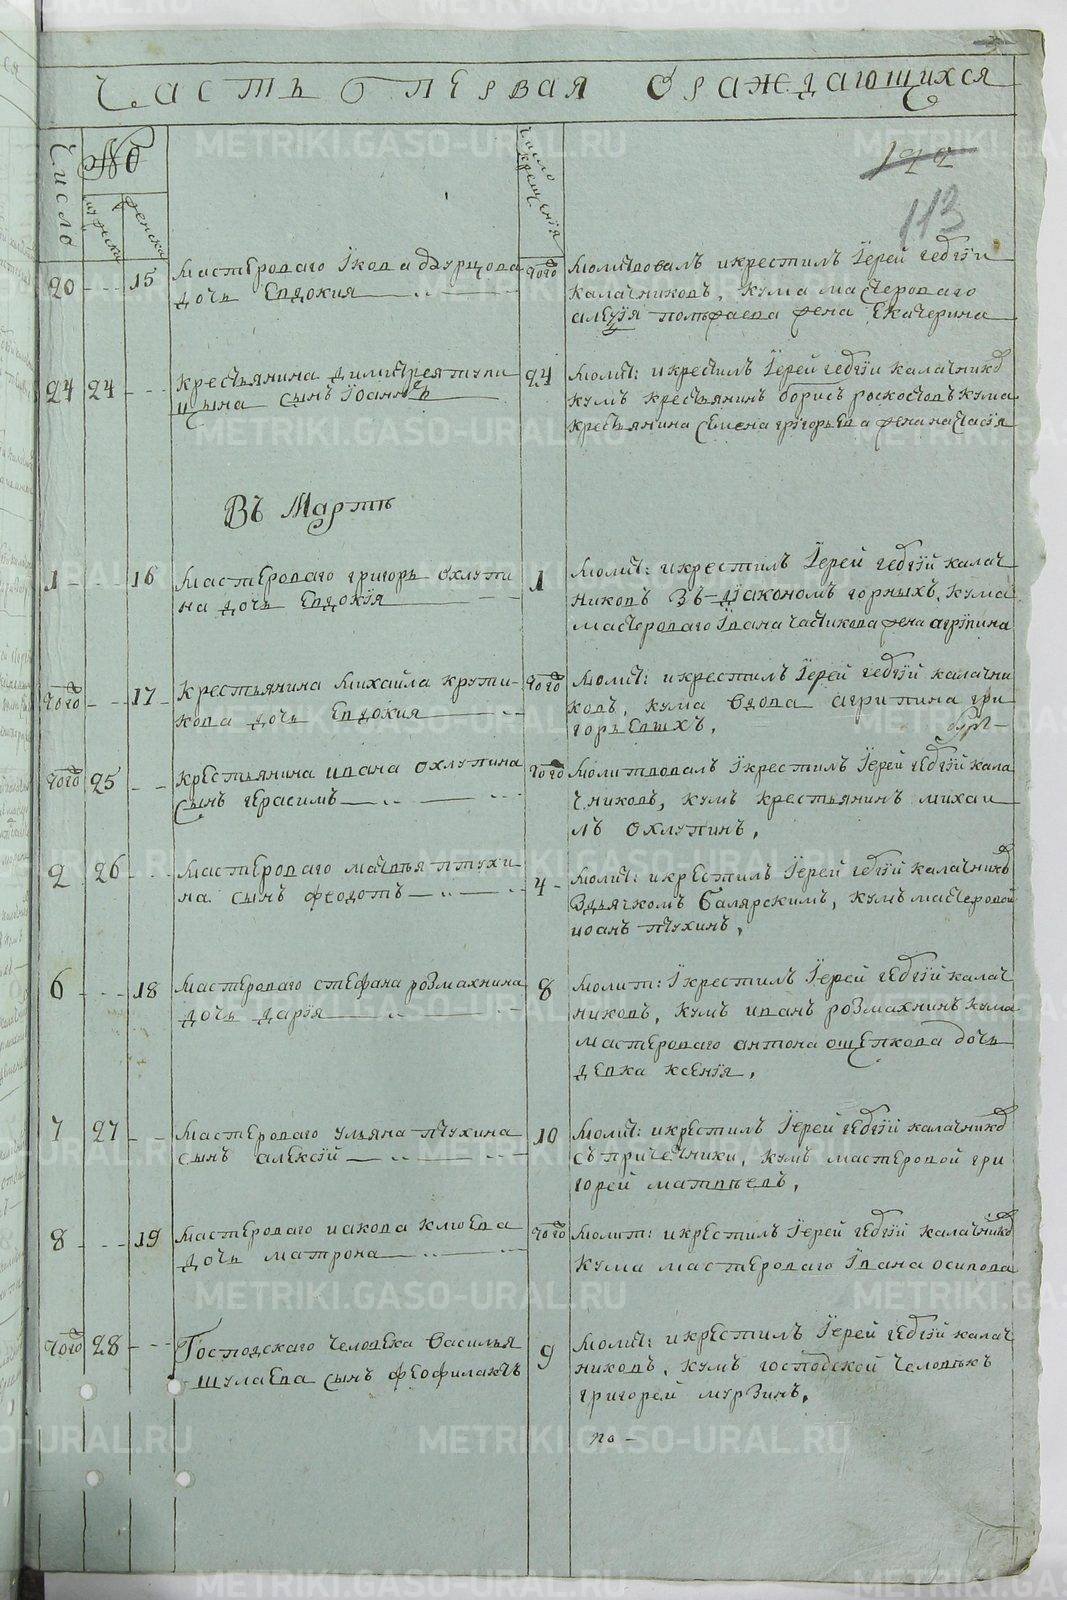 Часть первая ораждающихся
Число
№
мужска
женска
число крещенiя
122
113
20 15 мастероваго Iкова
дочь Евдокия
того
молитвовалъ икрестилъ Iерей геѡргiй
калачниковъ, кума мастероваго
жена Екатерина
24 24 крестьянина димитрея тупи
цына сынъ Iоаннъ
24
молит: икрестилъ Iерей геѡргiи калачникѡ
кумъ крестьянинъ борисъ кума
крестьянина семена григорьева жена настасiя
Въ Мартѣ
1 16 мастероваго григорья охлупи
на дочь Евдокiя
1
молит: икрестилъ Iерей геѡргiй калач
никовъ зъ дiакономъ горныхъ, кума
мастероваго Iвана частикова жена агрiпина
того 17 крестьянина михаила крути-
кова дочь Евдокия
того
молит: икрестилъ Iерей геѡргiй калачни
ковъ, кума вдова агрипина гри
горьевыхъ,
того 25 крестьянина ивана охлупина
сынъ герасимъ
того
молитвовалъ Iкрестилъ Iерей геѡргiй кала
чниковъ, кумъ крестьянинъ михаи
лъ охлупинъ,
2 26 мастероваго матвѣя птухи-
на сынъ феодотъ
4
молит: икрестилъ Iерей геѡргiй калачникѡ
здьячкомъ балярскимъ, кумъ мастеровой
иоанъ птухинъ,
6 18 мастероваго стефана розмахнина
дочь дарiя
8
молит: Iкрестилъ Iерей геѡргiй калач
никовъ, кумъ иванъ розмахнинъ кума
мастероваго антона ощепкова дочь
девка ксенiя,
7 27 мастероваго ульяна птухина
сынъ алексiй
10
молит: икрестилъ Iерей геѡргiй калачникѡ
съ причетники, кумъ мастеровой гри
горей матвѣевъ,
8 19 мастероваго иакова клюева
дочь матрона
того
молит: икрестилъ Iерей геѡргiй калачникѡ
кума мастероваго Iвана осипова
того 28 Господскаго человека василья
шулаева сынъ феофилактъ
9
молит: икрестилъ Iерей геѡргiй калач
никовъ, кумъ господской человѣкъ
григорей мурзинъ,
по-
METRIKI.GASO-URAL.RU